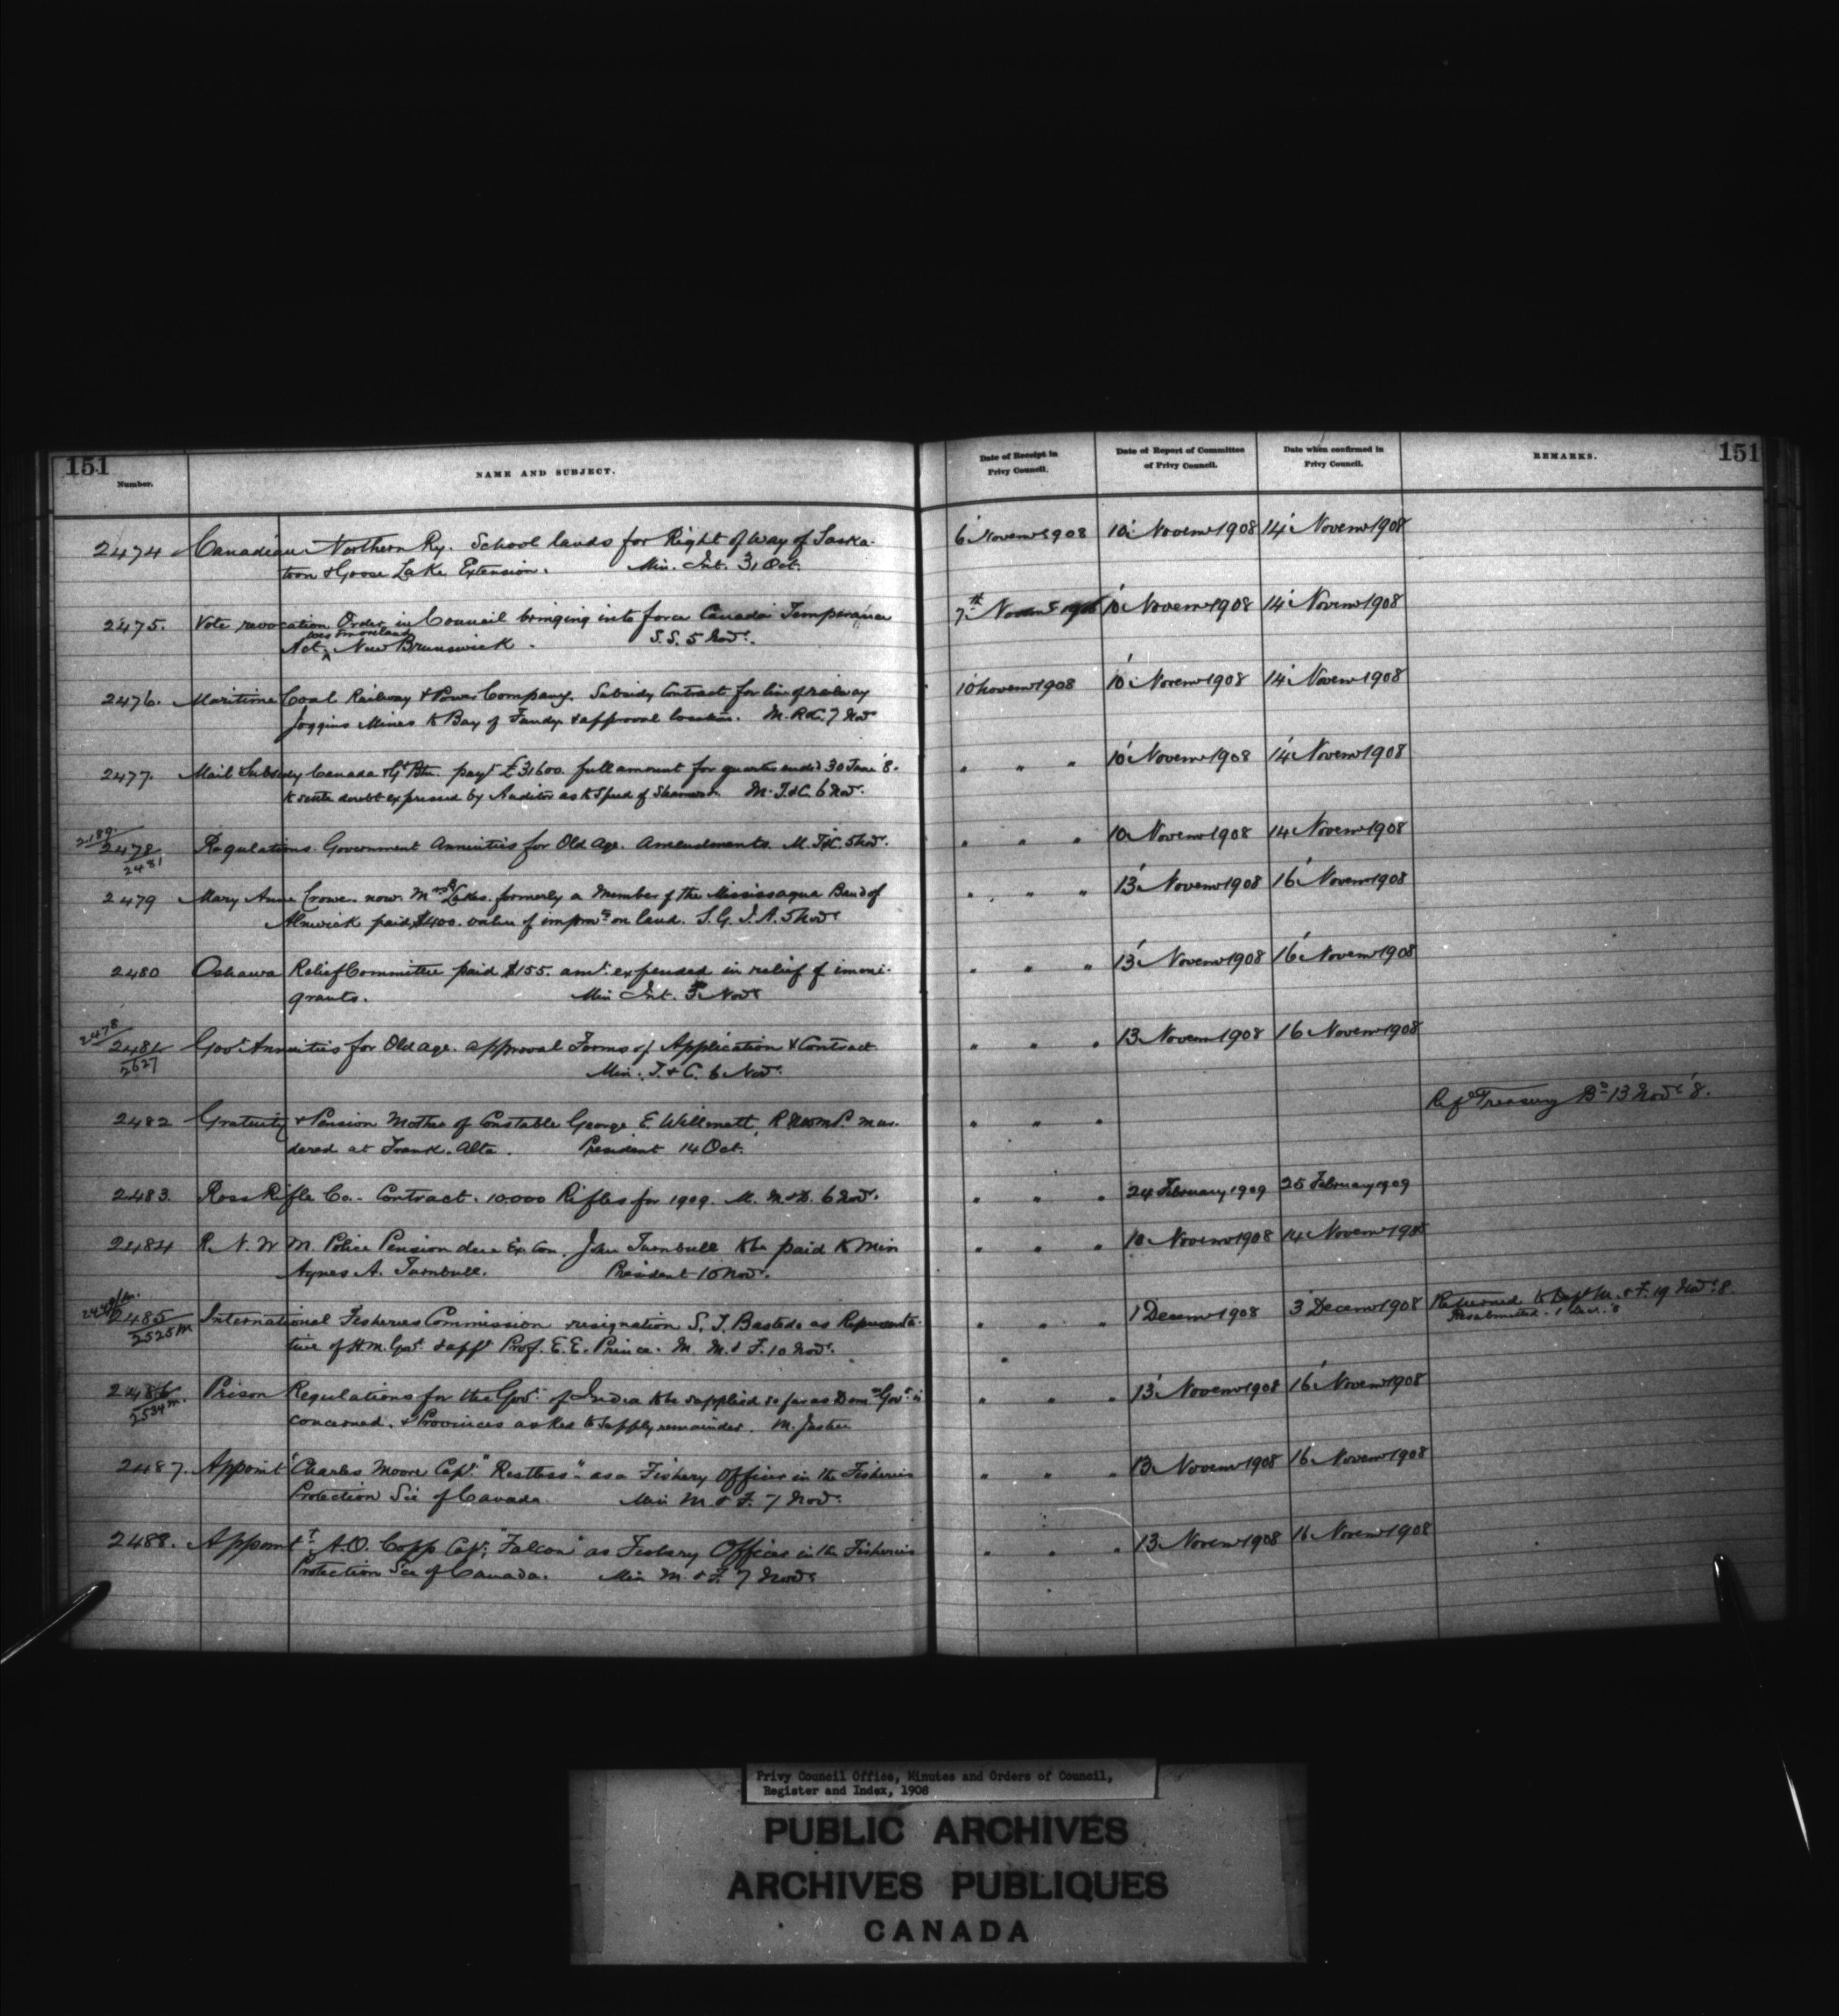 151
Number.
NAME AND SUBJECT.
Date of Receipt in Privy Council.
Date of Report of Committee of Privy Council.
Date when confirmed in Privy Council.
REMARKS.
151
2474 Canadian Northern Ry. School lands for Right of Way of Saska- 6 Novemr 1908 10 Novemr 1908 14 Novemr 1908
toon & Goose Lake Extension. Min. Int. 31 Oct.
2475. Vote revocation Order in Council bringing into force Canada Temperance 7th 10 Novemr 1908 14 Novemr 1908
Westmorland
Act ^ New Brunswick. S.S. 5 Novr.
2476. Maritime Coal Railway & Power Company. Subsidy Contract for line of railway 10 Novemr 1908 10 Novemr 1908 14 Novemr 1908
Joggins Mines to Bay of Fundy & approval location. M. R&C. 7 Novr
2477. Mail Subsidy Canada & Gt Btn. payt £31600. full amount for quarter ended 30 June '8. " " " 10 Novemr 1908 14 Novemr 1908
to settle doubt expressed by Auditor as to Speed of Steamers. M. T&C. 6 Nov.
2189
2478 Regulations. Government Annuities for Old Age. Amendments. M. T&C. 5 Novr. " " " 10 Novemr 1908 14 Novemr 1908
2481
2479 Mary Anne Crowe. now Mrs Lakes. formerly a Member of the Mississagua Band of " " " 13 Novemr 1908 16 Novemr 1908
Alnwick paid $400. value of improvts on land. S.G.I.A. 5 Novr
2480 Oshawa Relief Committee paid $155. amt expended in relief of immi- " " " 13 Novemr 1908 16 Novemr 1908
grants. Min Int. Novr
2478
2481 Govt Annuities for Old age. approval Forms of Application & Contract " " " 13 Novemr 1908 16 Novemr 1908
2627 Min. T. & C. 6 Novr.
Refd Treasury Bd 13 Novr '8.
2482 Gratuity & Pension Mother of Constable George E. Willmett, R.N.W.M.P. mur- " " "
dered at Frank. Alta. President 14 Oct.
2483. Ross Rifle Co. - Contract. 10.000 Rifles for 1909. M. M&D. 6 Novr. " " " 24 February 1909 25 February 1909
2484 R. N. W M. Police Pension due Ex Con. John Turnbull to be paid to Min " " " 10 Novemr 1908 14 Novemr 1908
Agnes A. Turnbull. President 10 Novr.
2485 International Fisheries Commission resignation S. T. Bastedo as Representa- " " " 1 Decemr 1908 3 Decemr 1908 Returned to Dept M. & F. 19 Novr '8.
2525 M tive of H.M. Govt & appt Prof. E.E. Prince. M. M. & F. 10 Novr. Resubmitted. 1 Decr. 8
2486 Prison Regulations for the Govt of India to be supplied so far as Domn Govt is " " " 13 Novemr 1908 16 Novemr 1908
2534 m. concerned. & Provinces asked to supply remainder. M. Justice
2487. Appoint Charles Moore Capt. "Restless" as a Fishery Officer in the Fisheries " " " 13 Novemr 1908 16 Novemr 1908
Protection Sce of Canada. Min M. & F. 7 Novr.
2488. Appointt A.O. Copp Capt. "Falcon" as Fishery Officer in the Fisheries " " " 13 Novemr 1908 16 Novemr 1908
Protection Sce of Canada. Min M. & F. 7 Novr
Privy Council Office, Minutes and Orders of Council,
Register and Index, 1908
PUBLIC ARCHIVES
ARCHIVES PUBLIQUES
CANADA